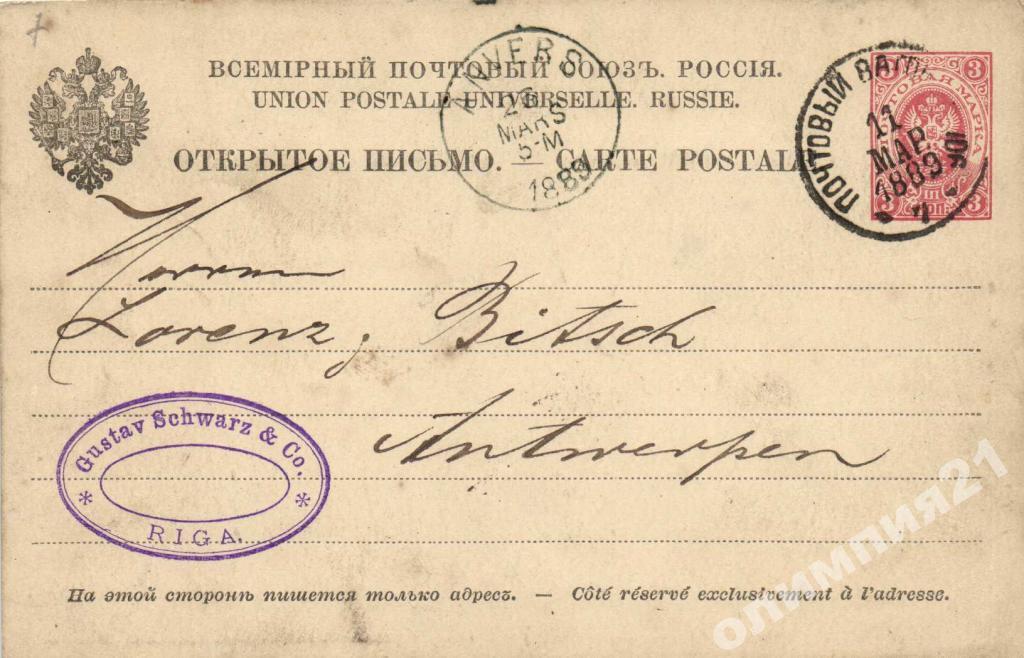 ВСЕМІРНЫЙ ПОЧТОВЫЙ СОЮЗЪ. РОССІЯ.
UNION POSTALE UNIVERSELLE. RUSSIE.
ОТКРЫТОЕ ПИСЬМО. — CARTE POSTALE
ANVERS
26
MARS
5-M
1889
ПОЧТОВЫЙ ВАГ
11
МАР.
1889
7
3 3
ПОЧТОВАЯ МАРКА
3 3
Herrn
Lorenz, Bitsch
Antwerpen
* Gustav Schwarz & Co. *
RIGA.
На этой сторонѣ пишется только адресъ. — Côté réservé exclusivement à l'adresse.
олимпия21